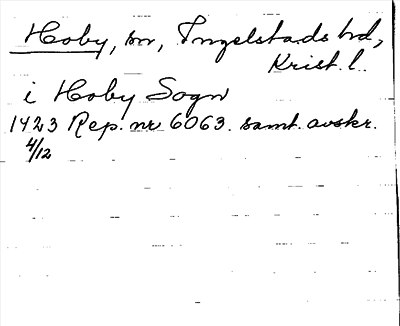 Hoby, sn, Ingelstads hd,
Krist. l.
i Hoby Sogn
1423 Rep. nr 6063. samt. avskr.
4/12